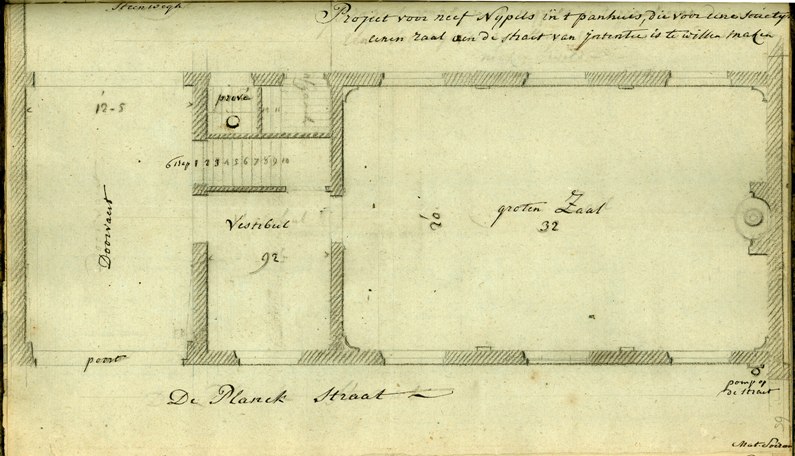 Steenwegh
Project voor neef Nypels in t panhuis, die voor eene Societyt
eenen zaal aen de straet van intentie is te willen maken
privé
12-8
6 trap 1 2 3 4 5 6 7 8 9 10
Doorvaert
Vestibul
92
20
groten Zaal
32
poort
De Planck Straat
pomp op
de straet
Mat. Soiron